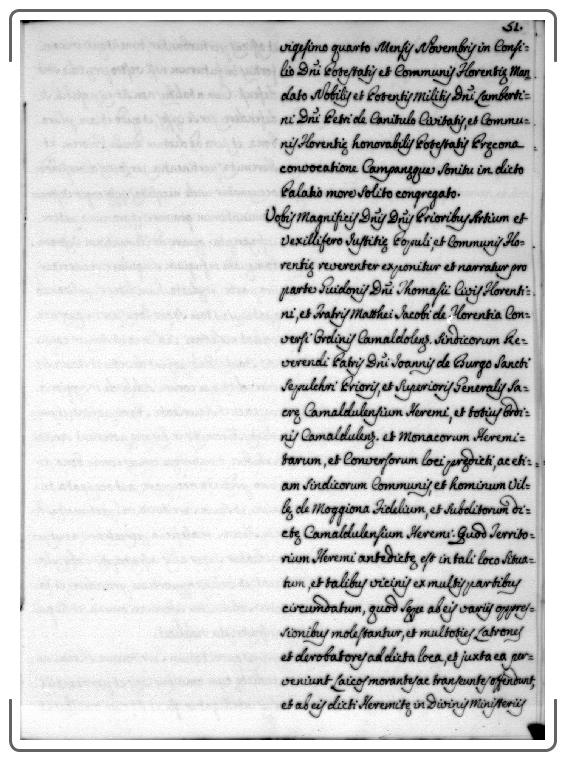 51.
vigesimo quarto Mensis Novembris in Consi-
lio Dni Potestatis et Communis Florentię Man
dato Nobilis et Potentis Militis Dni Lamberti-
ni Dni Petri de Canitulo Civitatis, et Commu-
nis Florentię honorabilis Potestatis Pręcona
convocatione Campanęque Sonitu in dicto
Palatio more solito congregato.
Vobis Magnificis Dnis Dnis Prioribus Artium et
Vexillifero Justitię Populi, et Communis Flo-
rentię reverenter exponitur et narratur pro
parte Guidonis Dni Thomasii Civis Florenti-
ni, et Fratris Matthei Jacobi de Florentia Con-
versi Ordinis Camaldolenς. Sindicorum Re-
verendi Patris Dni Joannis de Burgo Sancti
Sepulchri Prioris, et Superioris Generalis Sa-
crę Camaldulensium Heremi, et totius Ordi-
nis Camaldulenς. et Monacorum Heremi-
tarum, et Conversorum loci prędicti, ac eti-
am Sindicorum Communis, et hominum Vil-
lę de Moggiona Fidelium, et Subditorum di-
ctę Camaldulensium Heremi. Quod Territo-
rium Heremi antedictę est in tali loco Situa-
tum, et talibus vicinis ex multis partibus
circumdatum, quod sępe ab eis variis oppres-
sionibus molestantur, et multoties Latrones
et derobatores ad dicta loca, et juxta ea per-
veniunt Laicos morantes ac transeuntes offendunt,
et ab eis dicti Heremitę in Divinis Ministeriis